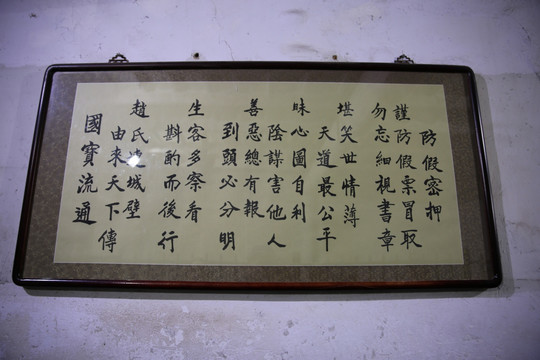 防假密押
謹防假票冒取
勿忘細視書章
堪笑世情薄
天道最公平
昧心圖自利
陰謀害他人
善惡總有報
到頭必分明
生客多察看
斟酌而後行
趙氏連城壁
由來天下傳
國寶流通